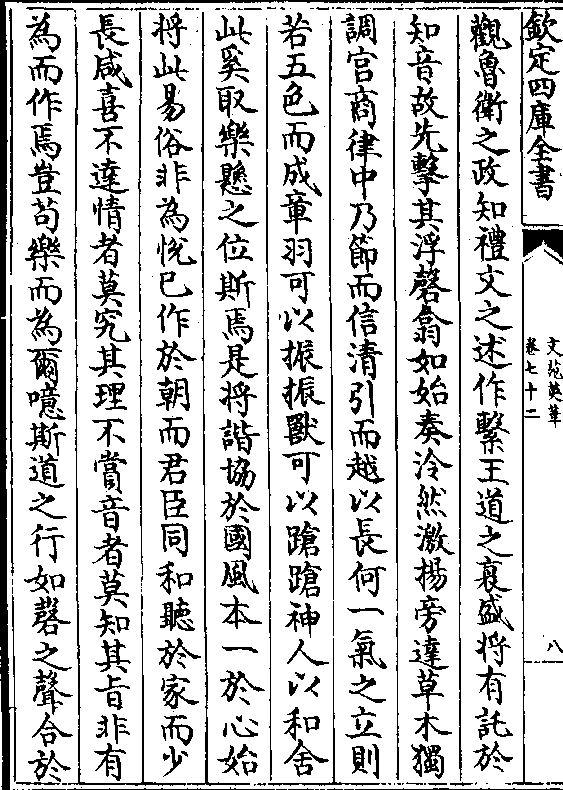 欽定四庫全書
文苑英華
卷七十二
八
觀魯衛之政知禮文之述作繫王道之衰盛將有託於
知音故先擊其浮磬翕如始奏泠然激揚旁達草木獨
調宫商律中乃節而信清引而越以長何一氣之立則
若五色而成章羽可以振振獸可以蹌蹌神人以和舍
此奚取樂懸之位斯焉是将諧協於國風本一於心始
将此易俗非為恱已作於朝而君臣同和聽於家而少
長咸喜不達情者莫究其理不賞音者莫知其㫖非有
為而作焉豈苟樂而為爾噫斯道之行如磬之聲合於